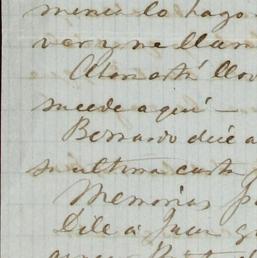 menos lo hago
ver y me llam
Ahora está llov
sucede aquí —
Bernardo dice a
su ultima carta
Memorias pa
Dile á Juan q